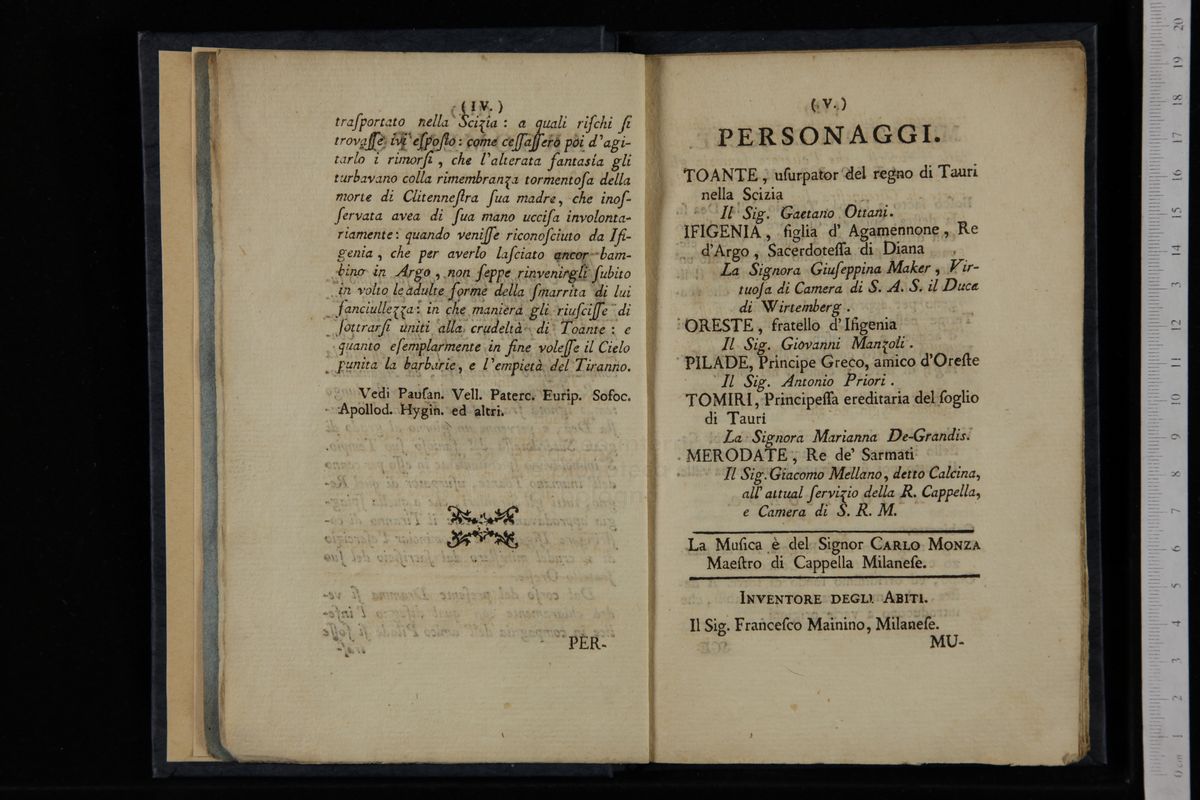 (IV.)
traſportato nella Scizia : a quali riſchi ſi
trovaſſe ivi eſpoſto : come ceſſaſſero poi d'agi-
tarlo i rimorſi , che l'alterata fantasía gli
turbavano colla rimembranza tormentoſa della
morte di Clitenneſtra ſua madre, che inoſ-
ſervata avea di ſua mano ucciſa involonta-
riamente : quando veniſſe riconoſciuto da Ifi-
genia , che per averlo laſciato ancor bam-
bino in Argo , non ſeppe rinvenirgli ſubito
in volto le adulte forme della ſmarrita di lui
fanciullezza : in che maniera gli riuſciſſe di
ſottrarſi uniti alla crudeltà di Toante : e
quanto eſemplarmente in fine voleſſe il Cielo
punita la barbarie, e l'empietà del Tiranno.
Vedi Pauſan. Vell. Paterc. Eurip. Sofoc.
Apollod. Hygin. ed altri.
PER-
(V.)
PERSONAGGI.
TOANTE , uſurpator del regno di Tauri
nella Scizia
Il Sig. Gaetano Ottani.
IFIGENIA , figlia d' Agamennone , Re
d'Argo , Sacerdoteſſa di Diana
La Signora Giuſeppina Maker , Vir-
tuoſa di Camera di S. A. S. il Duca
di Wirtemberg .
ORESTE , fratello d'Ifigenia
Il Sig. Giovanni Manzoli .
PILADE, Principe Greco, amico d'Oreſte
Il Sig. Antonio Priori .
TOMIRI, Principeſſa ereditaria del ſoglio
di Tauri
La Signora Marianna De-Grandis.
MERODATE , Re de' Sarmati
Il Sig. Giacomo Mellano, detto Calcina,
all' attual ſervizio della R. Cappella,
e Camera di S. R. M.
La Muſica è del Signor CARLO MONZA
Maeſtro di Cappella Milaneſe.
INVENTORE DEGLI ABITI.
Il Sig. Franceſco Mainino, Milaneſe.
MU-
0 cm 1 2 3 4 5 6 7 8 9 10 11 12 13 14 15 16 17 18 19 20